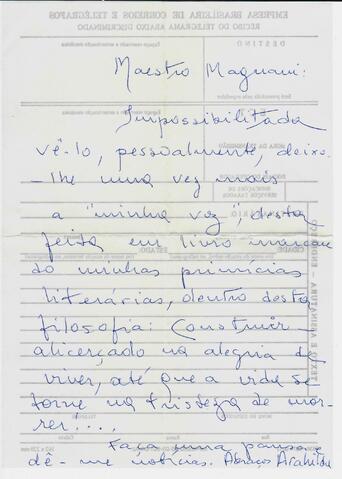 Maestro Magnani:
Impossibilitada
vê-lo, pessoalmente, deixo-
-lhe uma vez mais
a "minha voz", desta
feita em livro marcan
do minhas primicias
literárias, dentro desta
filosofia: Construir
alicerçado na alegria de
viver, até que a vida se
torne na tristeza de mor-
rer....
Faça uma pausa
dê-me notícias. Abraços
EMPRESA BRASILEIRA DE CORREIOS E TELÉGRAFOS
RECIBO DO TELEGRAMA ABAIXO DISCRIMINADO
DESTINO
TEXTO E ASSINATURA